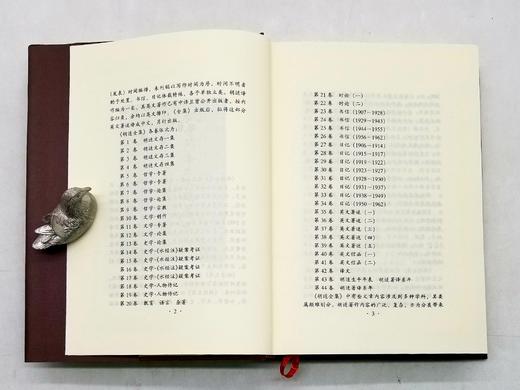 (发表)时间编排,未刊稿以写作时间为序,时间不明者
酌予处置。书信、日记体裁特殊,各予单独立类。胡适译
作编为一类。其英文著作已有中译且曾公开出版者,按内
《胡适全集》各卷次为:
第 1 卷 胡适文存一集
第 2 卷 胡适文存二集
第 3 卷 胡适文存三集
第 4 卷 胡适文存四集
第 5 卷 哲学·专著
第 6 卷 哲学·专著
第 7 卷 哲学·论集
第 8 卷 哲学·论集
第 9 卷 哲学·宗教
第 10 卷 文学·创作
第 11 卷 文学·专著
第 12 卷 文学·论集
第 13 卷 史学·论集
第 14 卷 史学·《水经注》疑案考证
第 15 卷 史学·《水经注》疑案考证
第 16 卷 史学·《水经注》疑案考证
第 17 卷 史学·《水经注》疑案考证
第 18 卷 史学·人物传记
第 19 卷 史学·人物传记
第 20 卷 教育 语言 杂著
· 2 ·
第 21 卷 时论(一)
第 22 卷 时论(二)
第 23 卷 书信(1907—1928)
第 24 卷 书信(1929—1943)
第 25 卷 书信(1944—1955)
第 26 卷 书信(1956—1962)
第 27 卷 日记(1906—1914)
第 28 卷 日记(1915—1917)
第 29 卷 日记(1919—1922)
第 30 卷 日记(1923—1927)
第 31 卷 日记(1928—1930)
第 32 卷 日记(1931—1937)
第 33 卷 日记(1938—1949)
第 34 卷 日记(1950—1962)
第 35 卷 英文著述(一)
第 36 卷 英文著述(二)
第 37 卷 英文著述(三)
第 38 卷 英文著述(四)
第 39 卷 英文著述(五)
第 40 卷 英文信函(一)
第 41 卷 英文信函(二)
第 42 卷 译文
第 43 卷 胡适生平年表 胡适著译系年
第 44 卷 胡适著译系年
《胡适全集》中有些文章内容涉及到多种学科,其类
属颇难划分。胡适著作内容的广泛、复杂,亦为分类带来
· 3 ·